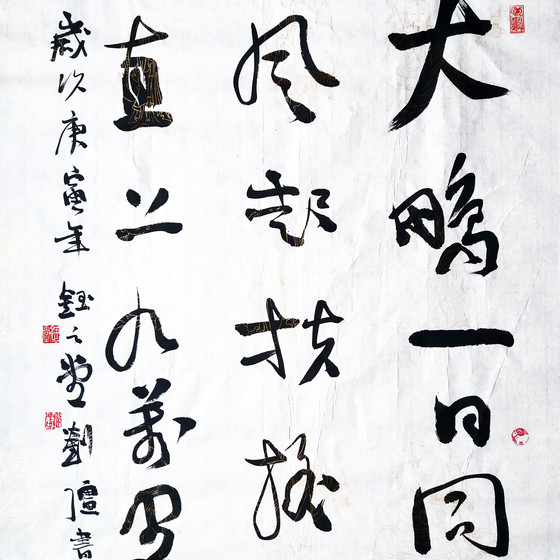 大鵬一日同
风起扶摇
直上九萬里
歲次庚寅年 鈺之堂 劉 書